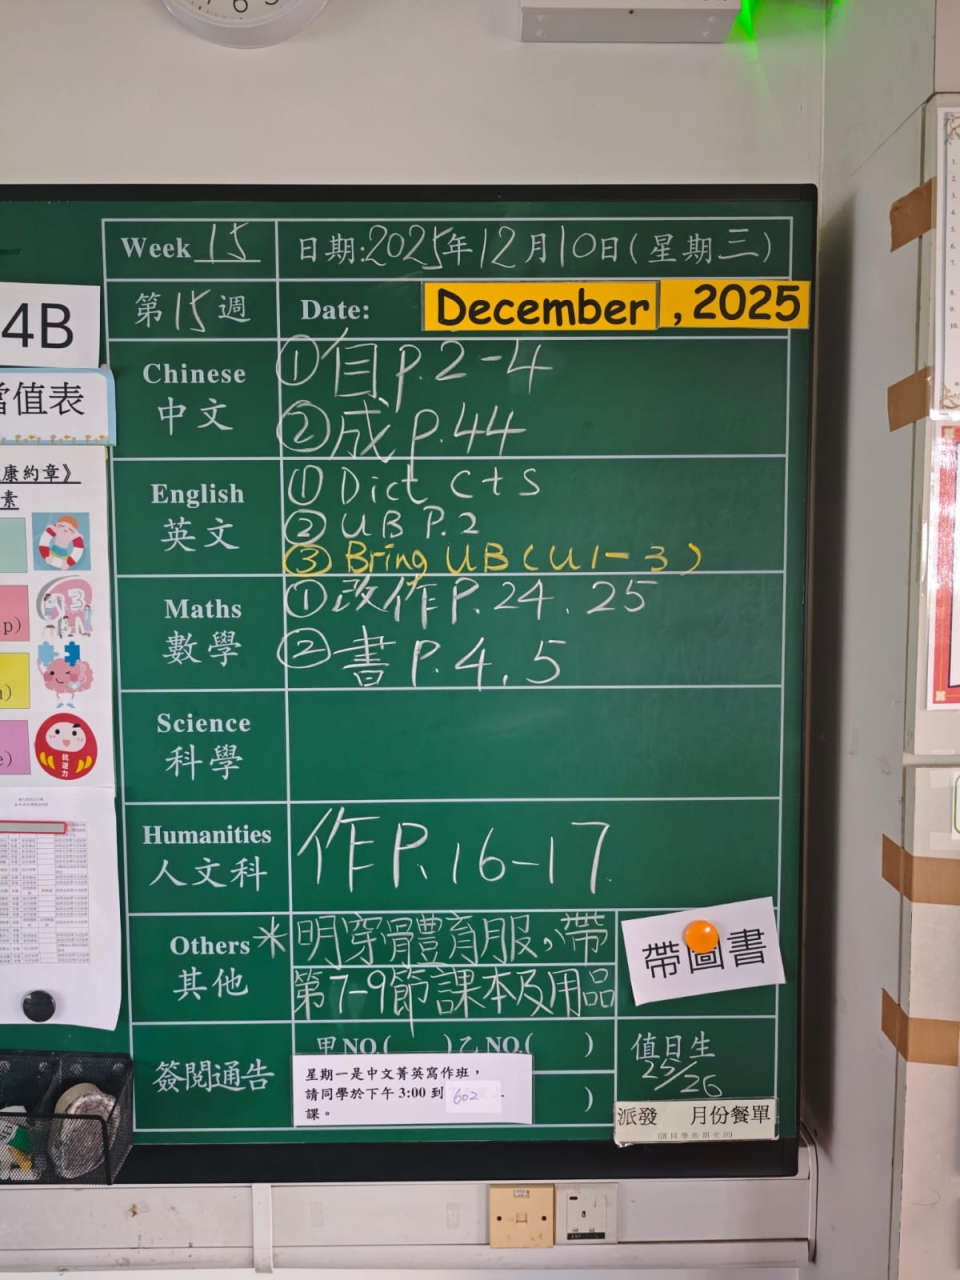 Week 15
日期:2025年12月10日(星期三)
第15週
Date: December , 2025
4B
值表
康約章》
素
Chinese
中文
①自P.2-4
②成P.44
English
英文
①Dict C+S
②UB P.2
③Bring UB(U1-3)
Maths
數學
①改作P.24.25
②書P.4.5
Science
科學
Humanities
人文科
作P.16-17
Others
其他
*明穿體育服,帶
第7-9節課本及用品
帶圖書
簽閱通告
甲NO.( )乙NO.( )
)
星期一是中文菁英寫作班,
請同學於下午 3:00 到 602
課。
值日生
25/26
派發 月份餐單
抗逆力